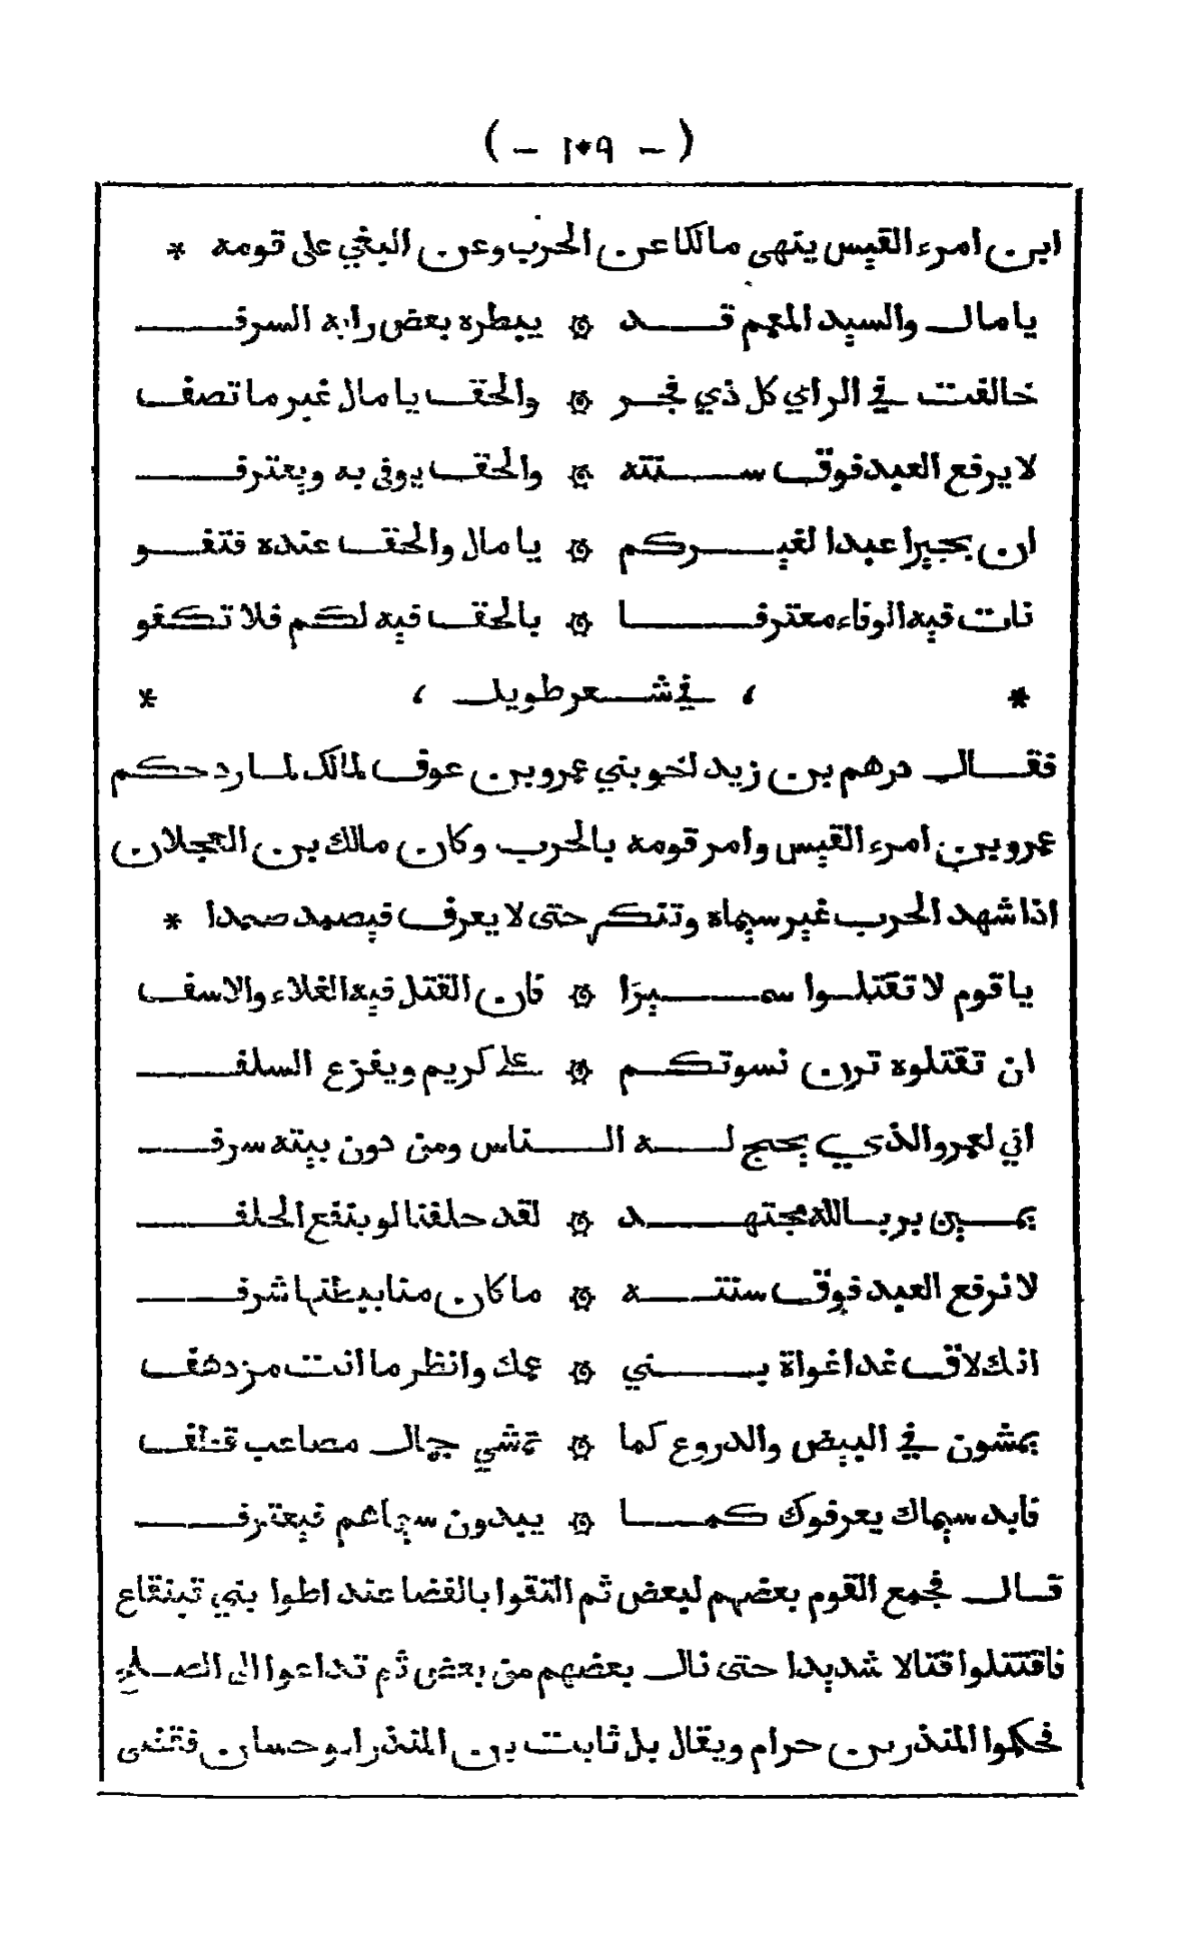 ( - ١٠٩ - )
ابن امرء القيس ينهى مالكا عن الحرب وعن البغي على قومه *
يا مال والسيد المعمم قد ۞ يبطره بعض رايه السرف
خالفت في الراي كل ذي فجر ۞ والحق يا مال غير ما تصف
لا يرفع العبد فوق سنته ۞ والحق يوفى به ويعترف
ان بجيرا عبدا لغيركم ۞ يا مال والحق عنده فتفو
نات فيه الوفاء معترفا ۞ بالحق فيه لكم فلا تكفو
* ، في شعر طويل ، *
فقال درهم بن زيد اخو بني عمرو بن عوف لمالك لما رد حكم
عمرو بن امرء القيس وامر قومه بالحرب وكان مالك بن العجلان
اذا شهد الحرب غير سيماه وتنكر حتى لا يعرف فيصمد صمدا *
يا قوم لا تقتلوا سميرا ۞ فان القتل فيه الغلاء والاسف
ان تقتلوه ترن نسوتكم ۞ على كريم ويفزع السلف
اني لعمرو الذي يحج له الناس ومن دون بيته سرف
يمين بر بالله مجتهد ۞ لقد حلفنا لو ينفع الحلف
لا نرفع العبد فوق سنته ۞ ما كان منا ببطنها شرف
انك لاق غدا غواة بني ۞ عمك وانظر ما انت مزدهف
يمشون في البيض والدروع كما ۞ تمشي جمال مصاعب قطف
فابد سيماك يعرفوك كما ۞ يبدون سيماهم فيعترف
قال فجمع القوم بعضهم لبعض ثم التقوا بالفضا عند اطوا بني قينقاع
فاقتتلوا قتالا شديدا حتى نال بعضهم من بعض ثم تداعوا الى الصلح
فحكموا المنذر بن حرام ويقال بل ثابت بن المنذر ابو حسان فقضى